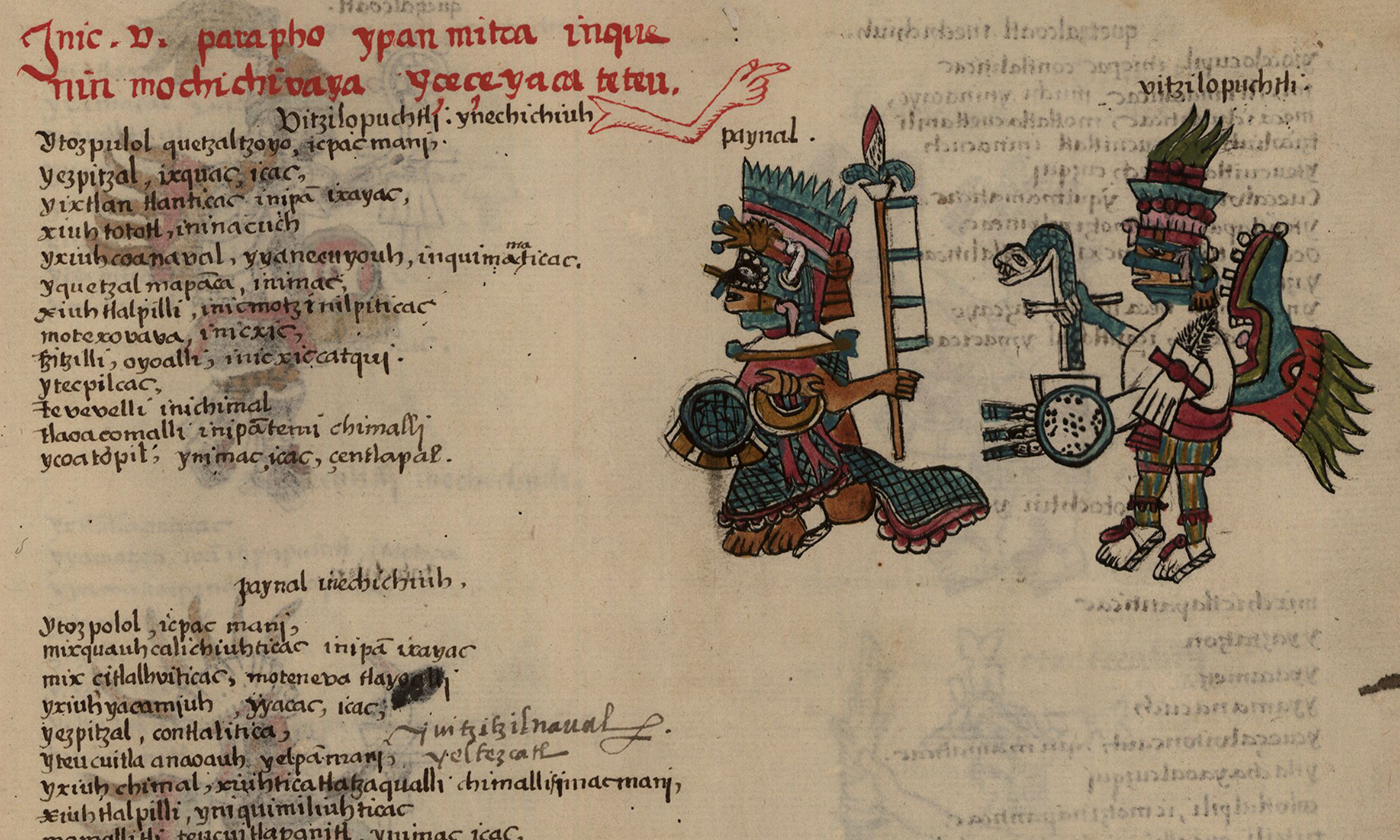 Inic. v. parapho ypan mitoa inque
nin mochichivaya yceceyaca teteu.
Vitzilopuchtli. ynechichiuh
ytozpulol quetzaltzoyo, icpac manj,
yezpitzal, ixquac, icac,
yixtlan tlanticac inipā ixayac,
xiuhtototl, ininacuch
yxiuhcoanaval, yyanecuyouh, inquimamaticac.
yquetzalmapāca, inimac,
xiuhtlalpilli, inicmotzinilpiticac
motexovava, inicxic,
tzitzilli, oyoalli, inicxic catqui.
ytecpilcac,
tevevelli inichimal
tlaoacomalli inipā temi chimalli
ycoatopil, ynimac, icac, centlapal.
paynal inechichiuh,
ytozpolol, icpac manj,
mixquauhcalichiuhticac inipā ixayac
mixcitlalhviticac, moteneva
yxiuhyacamjuh, yyacac, icac,
yezpitzal, contlalitica, yuitzitzilnaval.
yteucuitla anaoauh yelpā manj, yeltezcatl
yxiuhchimal, xiuhtica tlatzaqualli chimalli ynimac manj,
xiuhtlalpilli, yniquimiliuhticac
mamallitli teucuitlapanitl, ynimac icac.
paynal.
vitzilopuchtli.